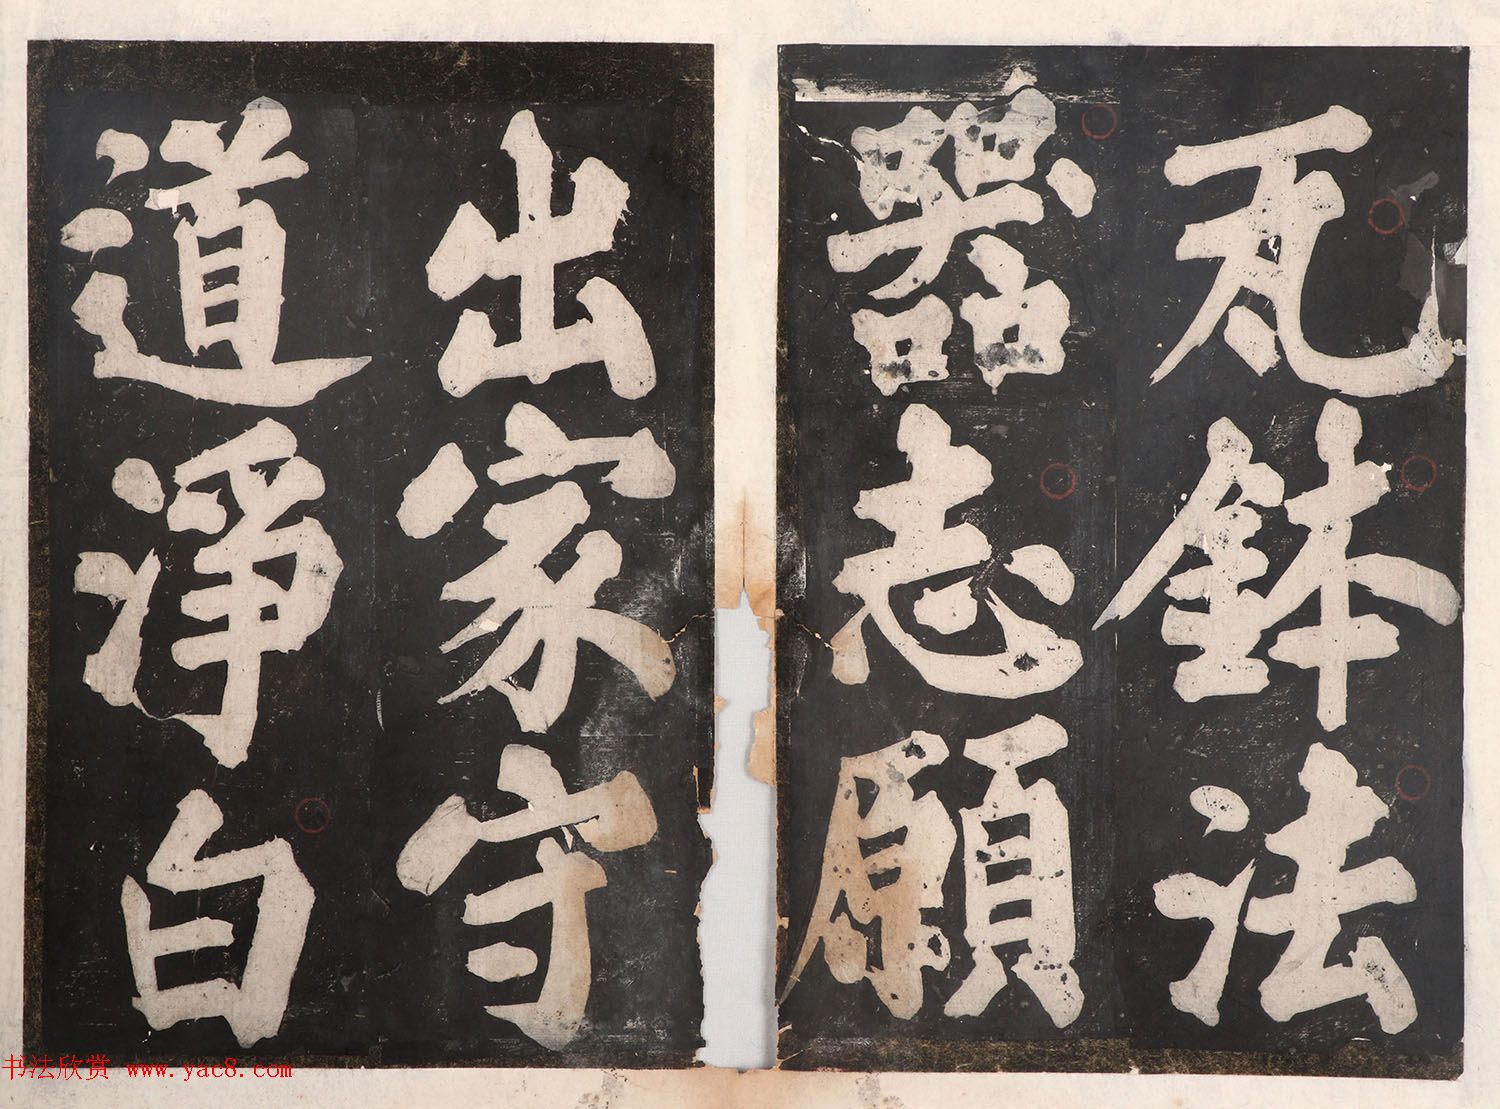 瓦鉢法
器志願
出家守
道淨白
书法欣赏 www.yac8.com